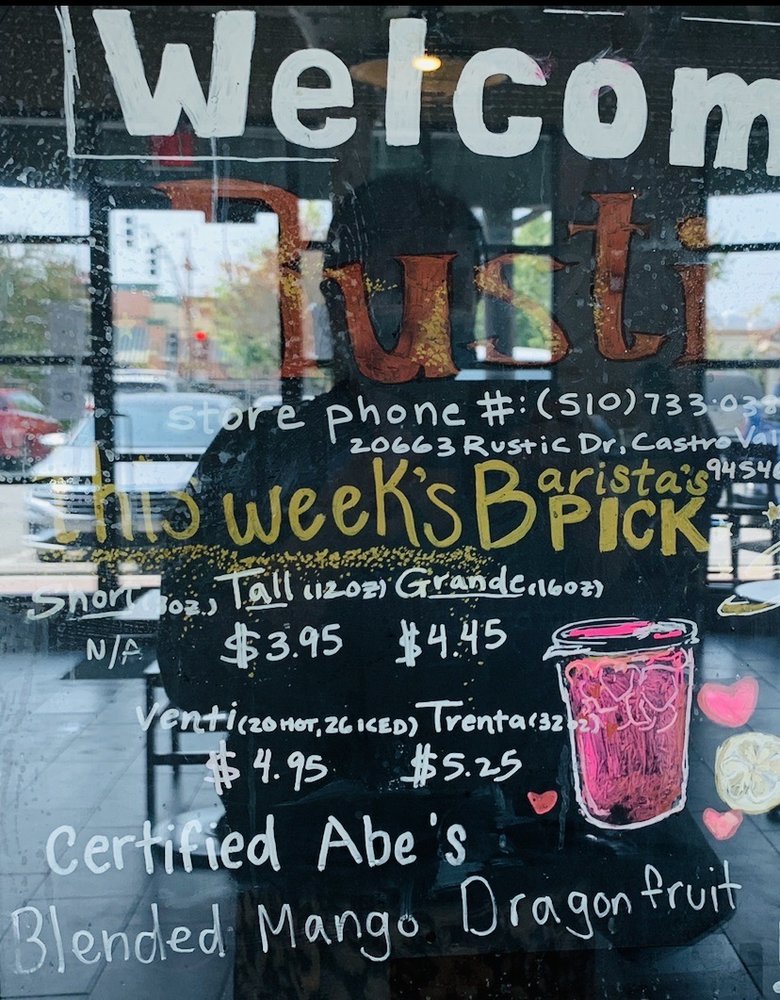 Welcom
Rusti
store phone #: (510) 733-03
20663 Rustic Dr, Castro Val
9454
this week's Barista's
PICK
Short (8oz) Tall (12oz) Grande (16oz)
N/A $3.95 $4.45
Venti (20 HOT, 26 ICED) Trenta (32oz)
$4.95 $5.25
Certified Abe's
Blended Mango Dragonfruit